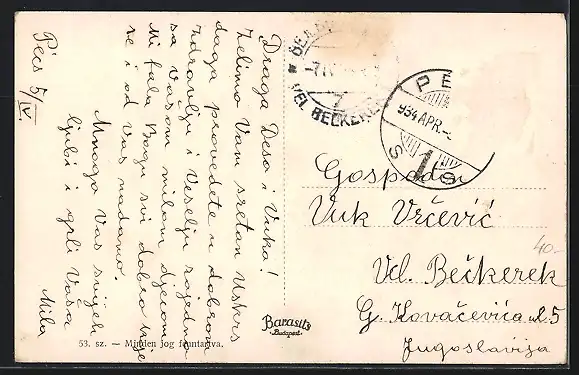 Pécs 5/IV.
Draga Deso i Vuko!
Želimo Vam sretan Uskrs
daga provedete u dobrom
zdravlju i veselju zajedno
sa Vašom milom djecom.
Mi fala Bogu svi dobro
se i od Vas nadamo.
Mnogo Vas svijeh
ljubi i grli Vaša
Mila
VEL. BEČKEREK
7
PÉCS
934 APR.
1
Gospodin
Vuk Vrčević
Vel. Bečkerek
G. Kovačevića ul. 5
Jugoslavija
40.-
Barasits
Budapest
53. sz. — Minden jog fenntartva.